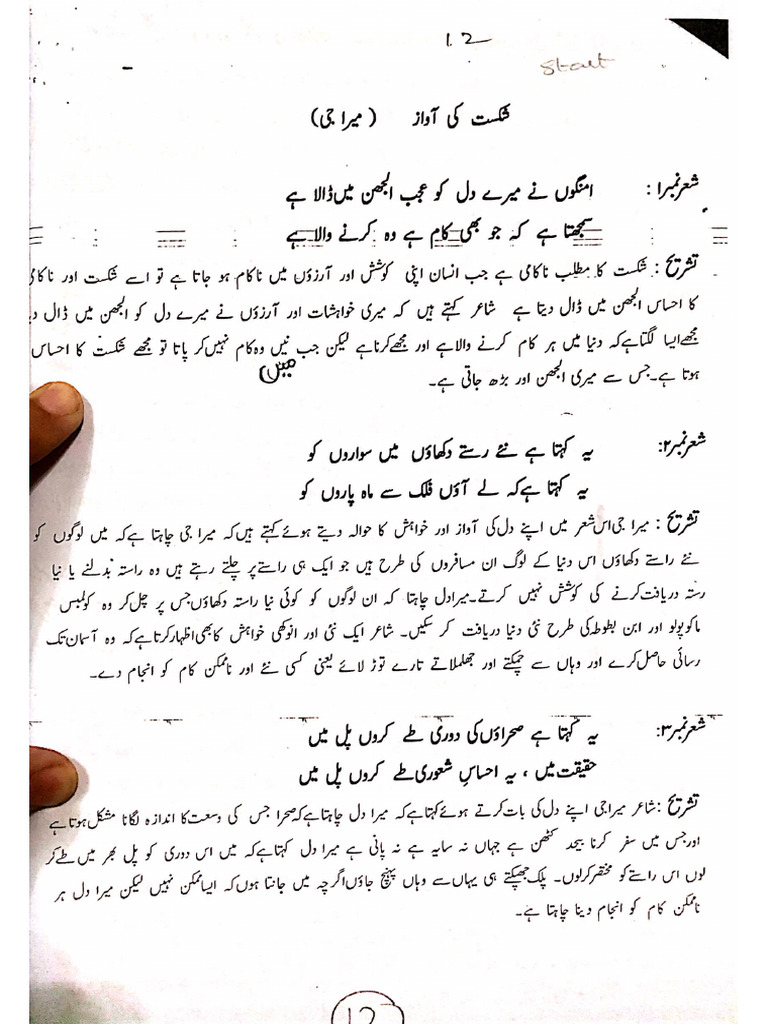 12
Start
شکست کی آواز (میرا جی)
شعر نمبر ۱: امنگوں نے میرے دل کو عجب الجھن میں ڈالا ہے
سمجھتا ہے کہ جو بھی کام ہے وہ کرنے والا ہے
تشریح : شکست کا مطلب ناکامی ہے جب انسان اپنی کوشش اور آرزؤں میں ناکام ہو جاتا ہے تو اسے شکست اور ناکامی
کا احساس الجھن میں ڈال دیتا ہے شاعر کہتے ہیں کہ میری خواہشات اور آرزؤں نے میرے دل کو الجھن میں ڈال
مجھے ایسا لگتا ہے کہ دنیا میں ہر کام کرنے والا ہے اور مجھے کرنا ہے لیکن جب میں وہ کام نہیں کر پاتا تو مجھے شکست کا احساس
(میں
ہوتا ہے۔ جس سے میری الجھن اور بڑھ جاتی ہے۔
شعر نمبر ۲: یہ کہتا ہے نئے رستے دکھاؤں میں سواروں کو
یہ کہتا ہے کہ لے آؤں فلک سے ماہ پاروں کو
تشریح : میرا جی اس شعر میں اپنے دل کی آواز اور خواہش کا حوالہ دیتے ہوئے کہتے ہیں کہ میرا جی چاہتا ہے کہ میں لوگوں کو
نئے راستے دکھاؤں اس دنیا کے لوگ ان مسافروں کی طرح ہیں جو ایک ہی راستے پر چلتے رہتے ہیں وہ راستہ بدلنے یا نیا
رستہ دریافت کرنے کی کوشش نہیں کرتے۔ میرا دل چاہتا کہ ان لوگوں کو کوئی نیا راستہ دکھاؤں جس پر چل کر وہ کولمبس
ماکوپولو اور ابن بطوطہ کی طرح نئی دنیا دریافت کر سکیں۔ شاعر ایک نئی اور انوکھی خواہش کا بھی اظہار کرتا ہے کہ وہ آسمان تک
رسائی حاصل کرے اور وہاں سے چمکتے اور جھلملاتے تارے توڑ لائے یعنی کسی نئے اور ناممکن کام کو انجام دے۔
شعر نمبر ۳: یہ کہتا ہے صحراؤں کی دوری طے کروں پل میں
حقیقت میں ، یہ احساسِ شعوری طے کروں پل میں
تشریح : شاعر میرا جی اپنے دل کی بات کرتے ہوئے کہتا ہے کہ میرا دل چاہتا ہے کہ صحرا جس کی وسعت کا اندازہ لگانا مشکل ہوتا ہے
اور جس میں سفر کرنا بیحد کٹھن ہے جہاں نہ سایہ ہے نہ پانی ہے میرا دل کہتا ہے کہ میں اس دوری کو پل بھر میں طے کر
لوں اس راستے کو مختصر کر لوں۔ پلک جھپکتے ہی یہاں سے وہاں پہنچ جاؤں اگرچہ میں جانتا ہوں کہ ایسا ممکن نہیں لیکن میرا دل ہر
ناممکن کام کو انجام دینا چاہتا ہے۔
12